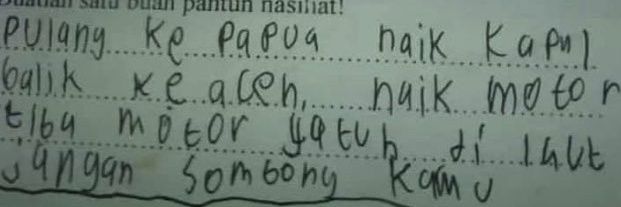 Buatlah satu buah pantun nasihat!
PULang Ke PaPUa naik Kapul
balik ke aceh, naik motor
tiba motor yatuh di laut
Jangan Sombong Kamu